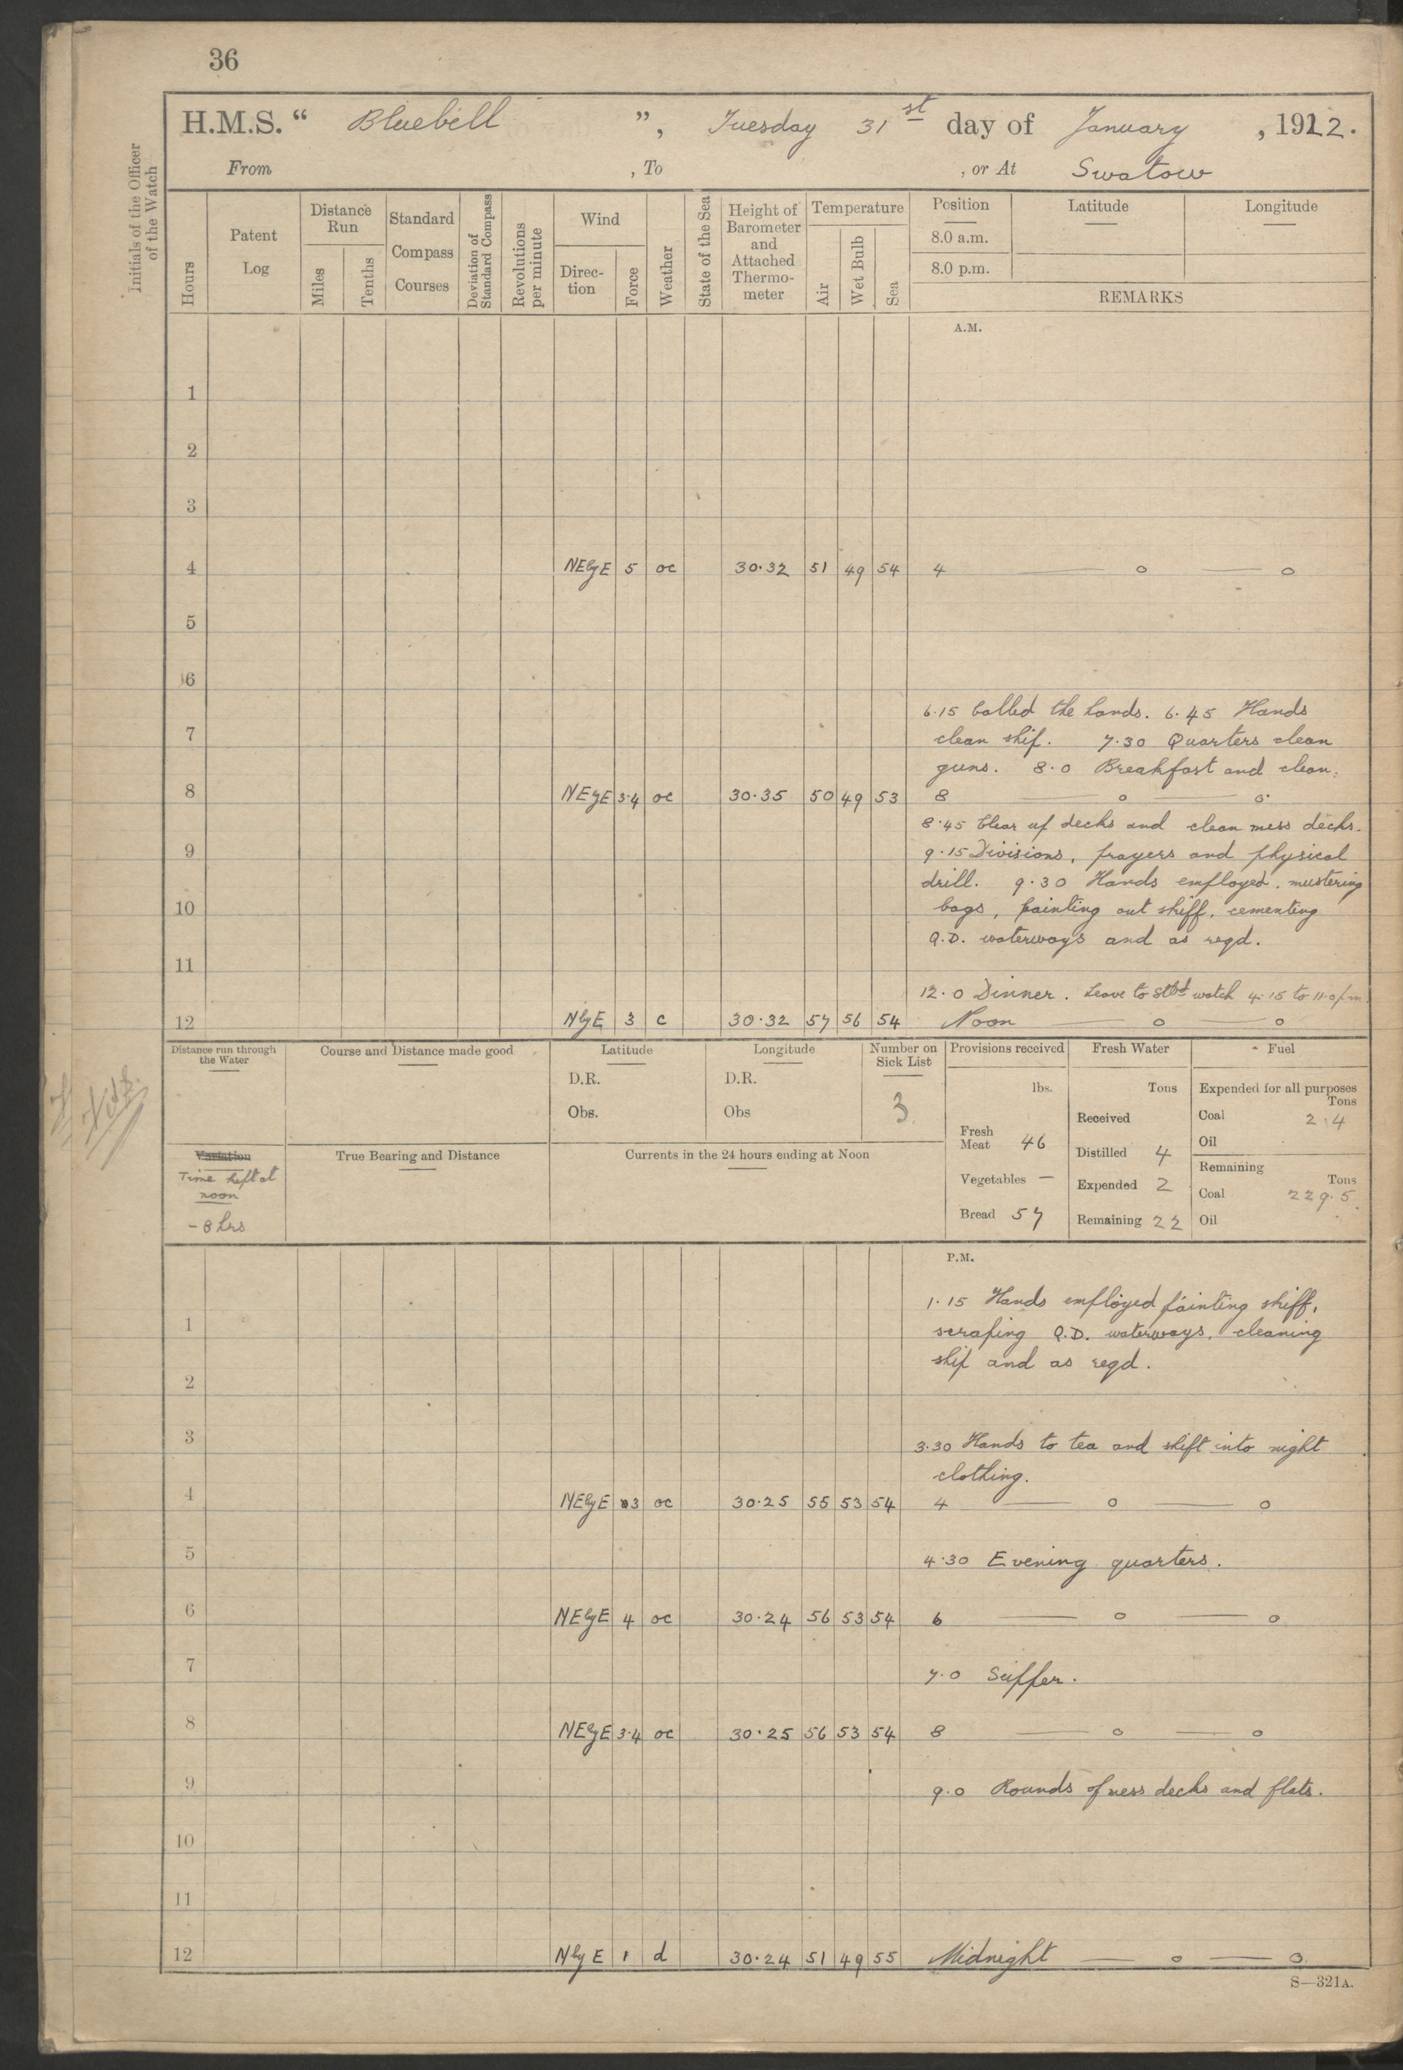 36
H.M.S. " Bluebell ", Tuesday 31st day of January, 1922.
From , To , or At Swatow
Initials of the Officer of the Watch
Hours
Patent Log
Distance Run
Miles
Tenths
Standard Compass Courses
Deviation of Standard Compass
Revolutions per minute
Wind
Direc-tion
Force
Weather
State of the Sea
Height of Barometer and Attached Thermo-meter
Temperature
Air
Wet Bulb
Sea
Position
8.0 a.m.
8.0 p.m.
Latitude
Longitude
REMARKS
A.M.
1
2
3
4 NEbyE 5 oc 30.32 51 49 54 4 — o — o
5
6
6.15 Called the hands. 6.45 Hands
7 clean ship. 7.30 Quarters clean
guns. 8.0 Breakfast and clean.
8 NEbyE 3.4 oc 30.35 50 49 53 8 — o — o
8.45 Clear up decks and clean mess decks.
9 9.15 Divisions, prayers and physical
drill. 9.30 Hands employed, mustering
10 bags, painting out skiff, cementing
Q.D. waterways and as reqd.
11
12.0 Dinner. Leave to Stbd watch 4.15 to 11.0 p.m.
12 NbyE 3 c 30.32 57 56 54 Noon — o — o
Distance run through the Water
Course and Distance made good
Latitude
D.R.
Obs.
Longitude
D.R.
Obs
Number on Sick List
3
Provisions received
lbs.
Fresh Meat 46
Vegetables —
Bread 57
Fresh Water
Tons
Received
Distilled 4
Expended 2
Remaining 22
Fuel
Expended for all purposes
Tons
Coal 2.4
Oil
Remaining
Tons
Coal 229.5
Oil
Variation
Time kept at
noon
- 8 hrs
True Bearing and Distance
Currents in the 24 hours ending at Noon
P.M.
1.15 Hands employed painting skiff,
1 scraping Q.D. waterways, cleaning
ship and as reqd.
2
3 3.30 Hands to tea and shift into night
clothing.
4 NEbyE 3 oc 30.25 55 53 54 4 — o — o
5 4.30 Evening quarters.
6 NEbyE 4 oc 30.24 56 53 54 6 — o — o
7 7.0 Supper.
8 NEbyE 3.4 oc 30.25 56 53 54 8 — o — o
9 9.0 Rounds of mess decks and flats.
10
11
12 NbyE 1 d 30.24 51 49 55 Midnight — o — o
S—321A.